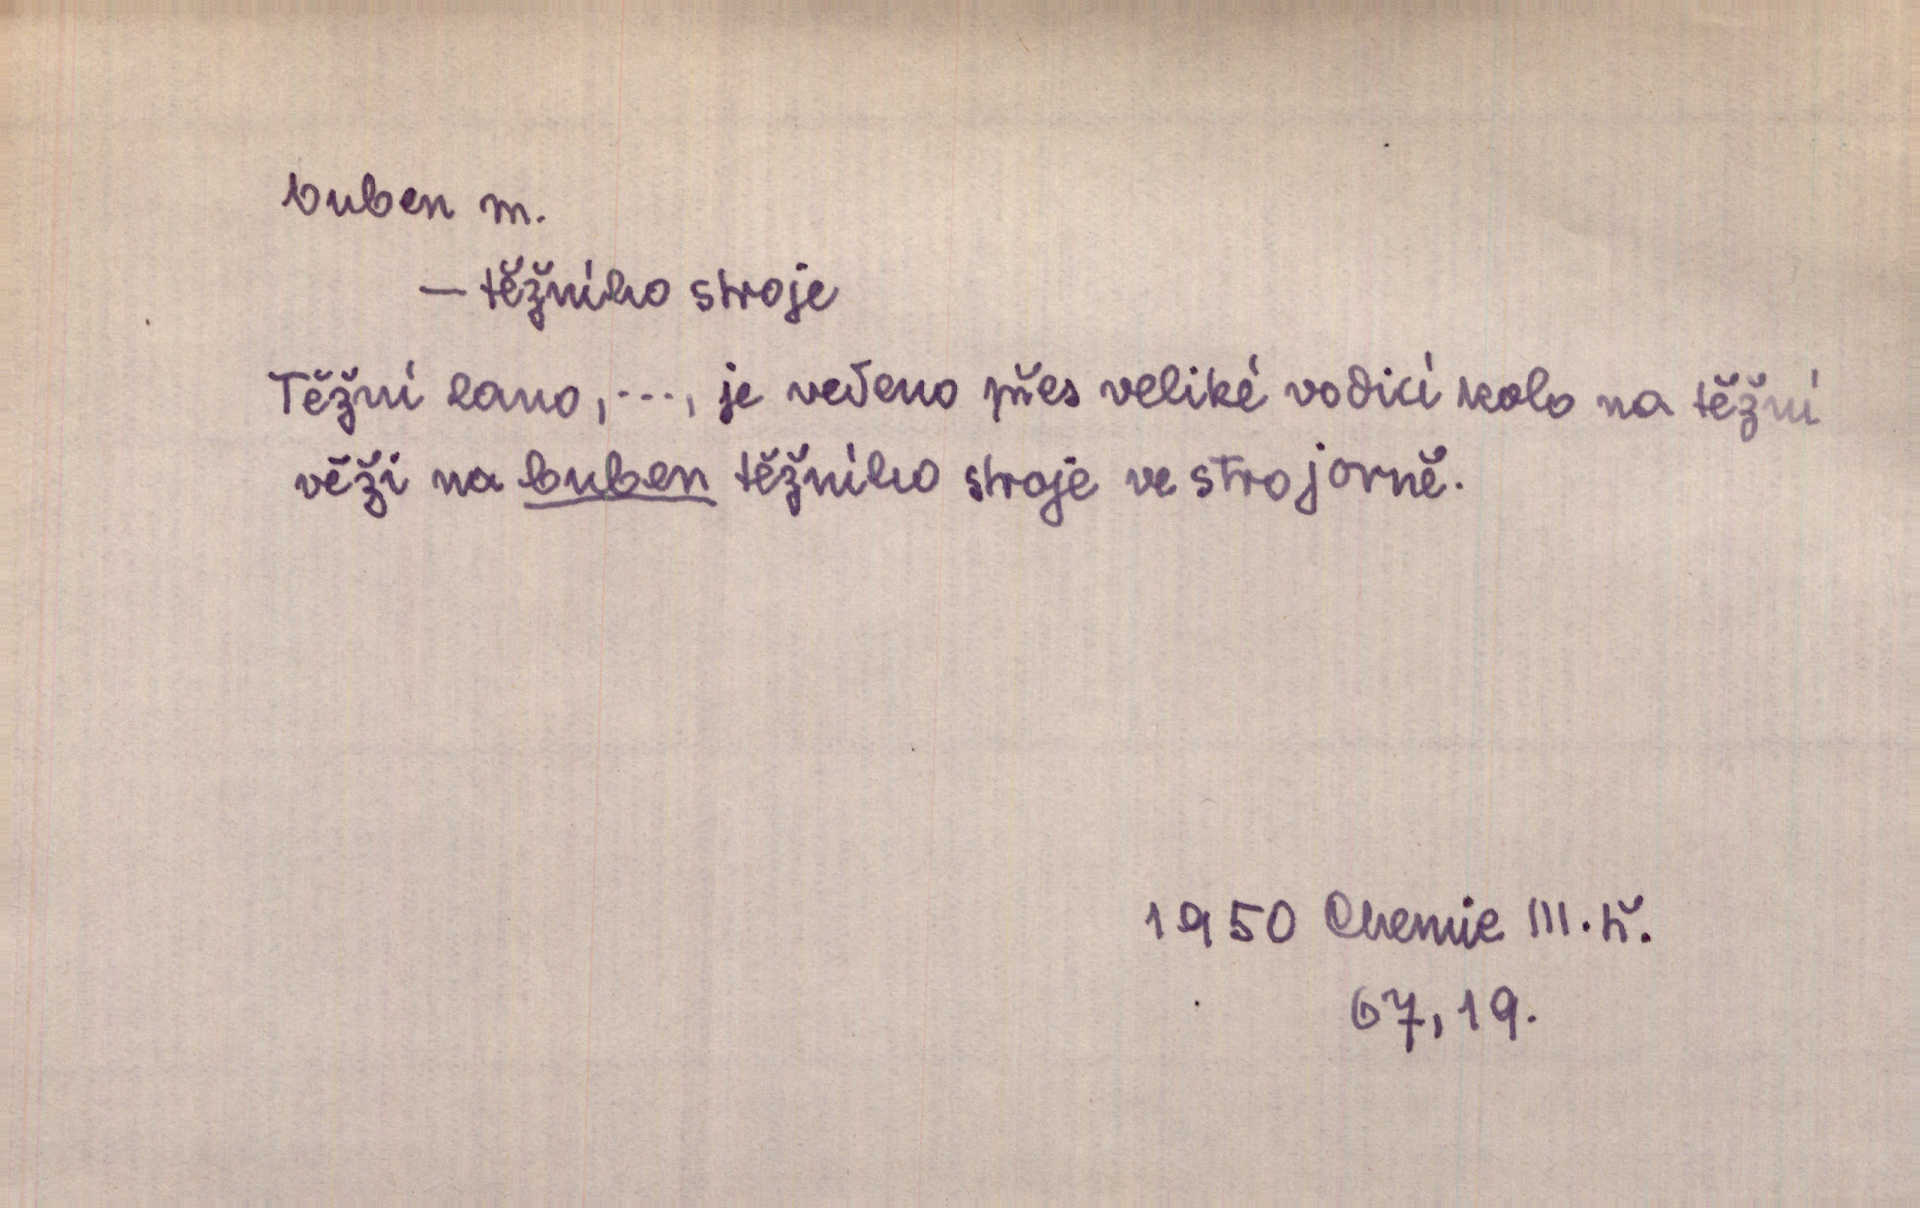 buben m.
— těžního stroje
Těžní lano, ..., je vedeno přes veliké vodicí kolo na těžní
věži na buben těžního stroje ve strojovně.
1950 Chemie III.ř.
67, 19.